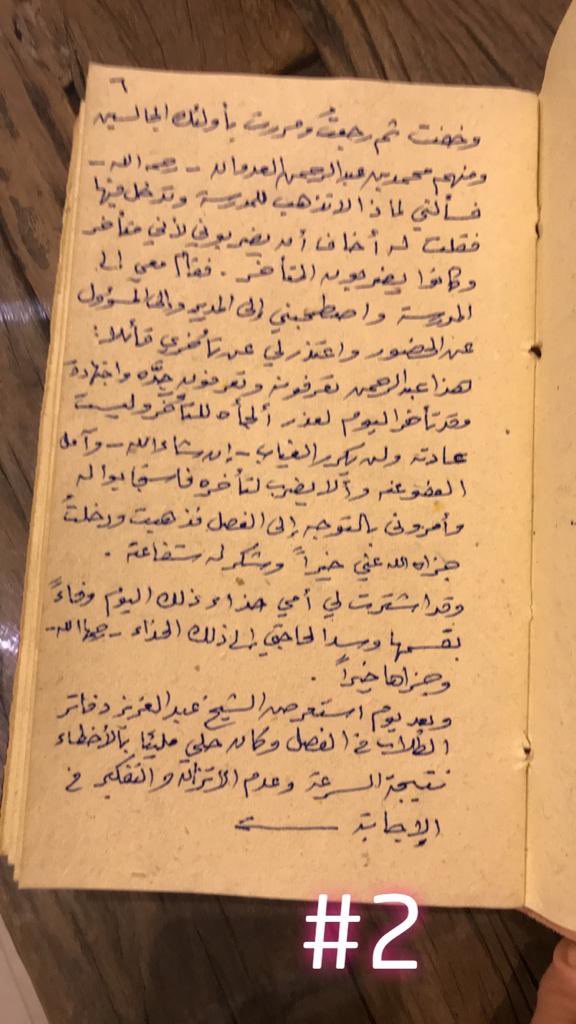 ٦
وخفت ثم رجعتُ ومررت بأولئك الجالسين
ومنهم محمد بن عبدالرحمن العدوان - رحمه الله -
فسألني لماذا لا تذهب للمدرسة وتدخل فيها
فقلت له أخاف أن يضربوني لأني متأخر
وكانوا يضربون المتأخر . فقام معي إلى
المدرسة واصطحبني إلى المدير وإلى المسؤول
عن الحضور واعتذر لي عن تأخري قائلا:
هذا عبدالرحمن تعرفونه وتعرفون جِدَّه واجتهاده
وقد تأخر اليوم لعذر ألجأه للتأخر وليست
عادته ولن يكرر الغياب - إن شاء الله - وآمل
العفو عنه وألا يضرب لتأخره فاستجابوا له
وأمروني بالتوجه إلى الفصل فذهبت ودخلتُ
جزاه الله عني خيراً وشكر له شفاعته .
وقد اشترت لي أمي حذاء ذلك اليوم وفاءً
بقسمها وسدا لحاجتي إلى ذلك الحذاء - رحمها الله -
وجزاها خيراً .
وبعد يوم استعرض الشيخ عبدالعزيز دفاتر
الطلاب في الفصل وكان حلي مليئا بالأخطاء
نتيجة السرعة وعدم الاتزان والتفكير في
الإجابة
#2